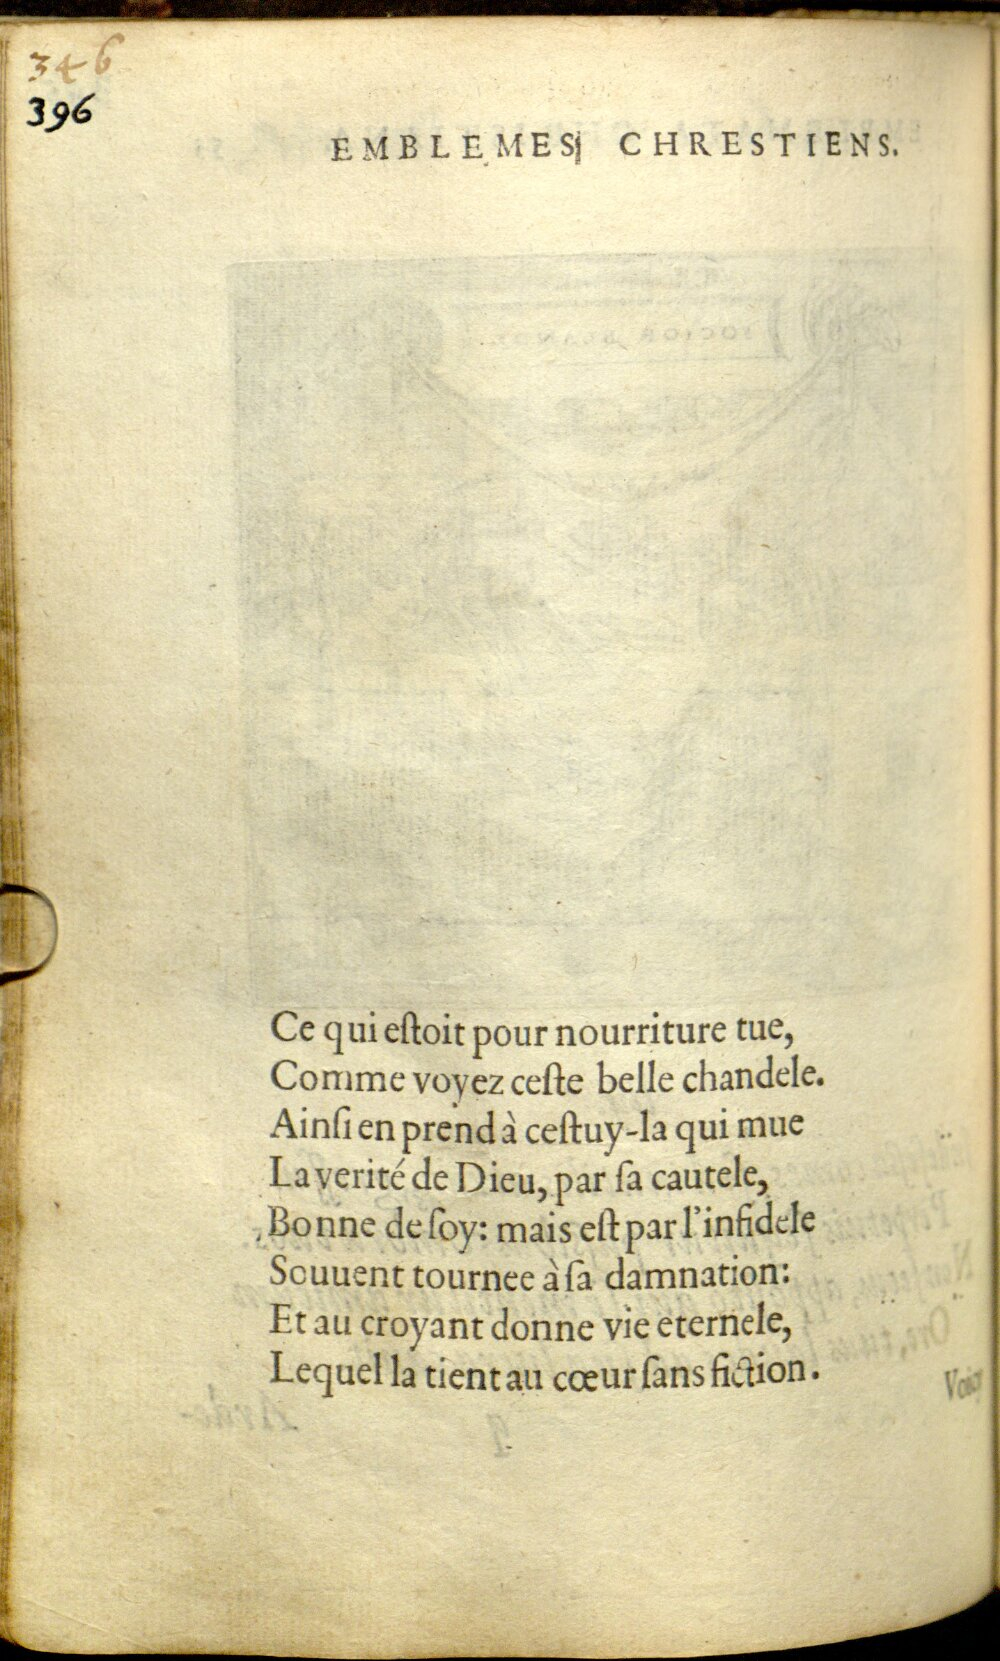 346
396
EMBLEMES CHRESTIENS.
Ce qui eſtoit pour nourriture tue,
Comme voyez ceſte belle chandele.
Ainſi en prend à ceſtuy-la qui mue
La verité de Dieu, par ſa cautele,
Bonne de ſoy: mais eſt par l'infidele
Souuent tournee à ſa damnation:
Et au croyant donne vie eternele,
Lequel la tient au cœur ſans fiction.
Voicy